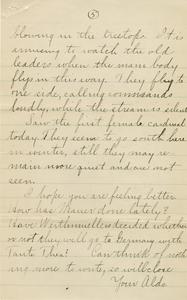 5
blowing in the treetops. It is
amusing to watch the old
leaders when the main body
fly in this way. They fly to
one side, calling commands
loudly, while the stream is silent
Saw the first female cardinal
today. They seem to go south here
in winter, still they may re-
main more quiet and are not
seen.
I hope you are feeling better
How has Mauer done lately?
Have Werthmuellers decided whether
or not they will go to Germany with
Tante Thea? Can think of noth-
ing more to write, so will close
Your Aldo